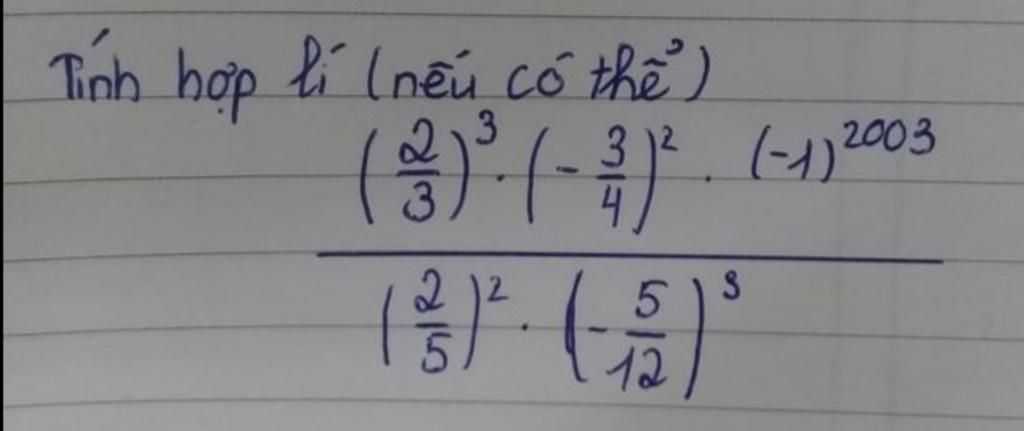 Tính hợp lí (nếu có thể)
(2/3)³ . (-3/4)² . (-1)²⁰⁰³
(2/5)² . (-5/12)³